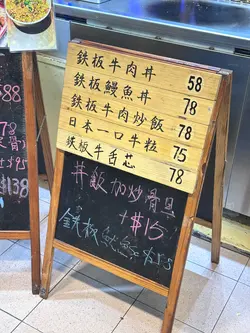 鉄板牛肉丼 58
鉄板鰻魚丼 78
鉄板牛肉炒飯 78
日本一口牛粒 75
鉄板牛舌芯 78
丼飯加炒骨且
+$15
鉄板魷鬚 $75
$138